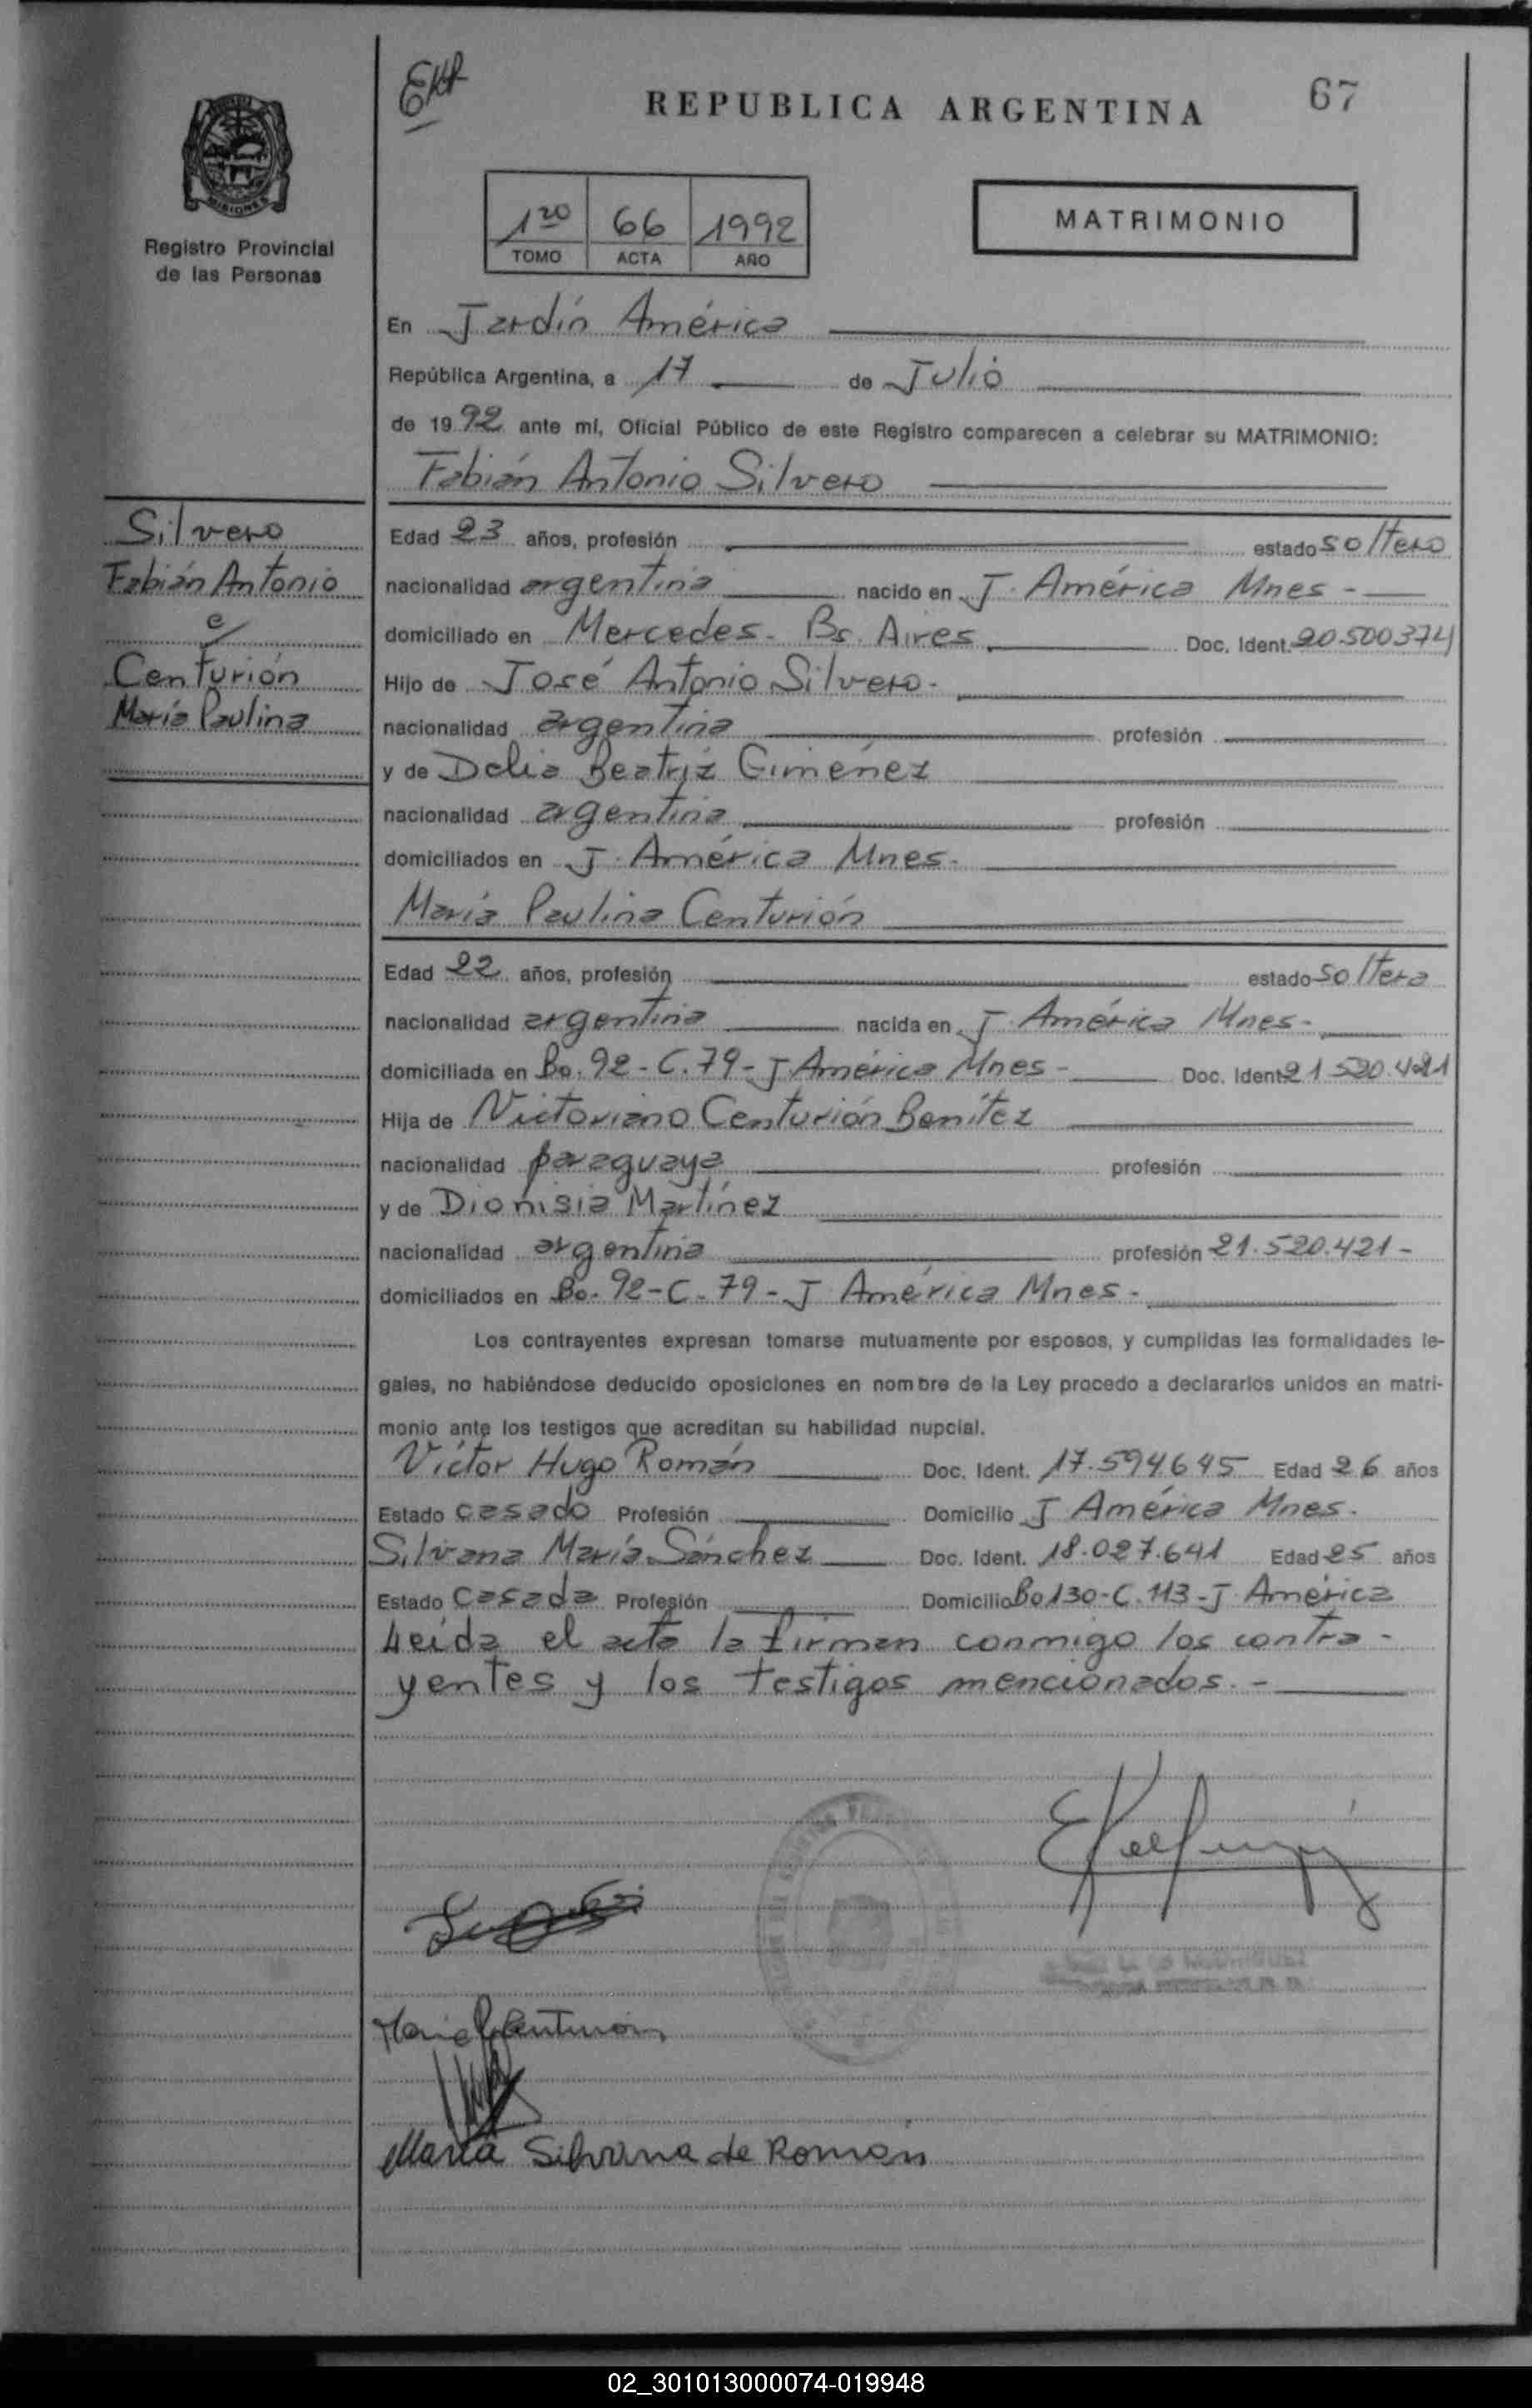 EKP
REPUBLICA ARGENTINA
67
MISIONES
Registro Provincial
de las Personas
1ro 66 1992
TOMO ACTA AÑO
MATRIMONIO
En Jardín América
República Argentina, a 17 de Julio
de 1992 ante mí, Oficial Público de este Registro comparecen a celebrar su MATRIMONIO:
Fabián Antonio Silvero
Silvero
Fabián Antonio
c/
Centurión
María Paulina
Edad 23 años, profesión estado soltero
nacionalidad argentina nacido en J. América Mnes -
domiciliado en Mercedes - Bs. Aires Doc. Ident. 20.500374
Hijo de José Antonio Silvero -
nacionalidad argentina profesión
y de Delia Beatriz Giménez
nacionalidad argentina profesión
domiciliados en J. América Mnes -
María Paulina Centurión
Edad 22 años, profesión estado soltera
nacionalidad argentina nacida en J. América Mnes -
domiciliada en Bo. 92 - C. 79 - J. América Mnes - Doc. Ident. 21 520.421
Hija de Victoriano Centurión Benítez
nacionalidad paraguaya profesión
y de Dionisia Martínez
nacionalidad argentina profesión 21.520.421 -
domiciliados en Bo. 92 - C - 79 - J América Mnes -
Los contrayentes expresan tomarse mutuamente por esposos, y cumplidas las formalidades le-
gales, no habiéndose deducido oposiciones en nombre de la Ley procedo a declararlos unidos en matri-
monio ante los testigos que acreditan su habilidad nupcial.
Víctor Hugo Román Doc. Ident. 17.594645 Edad 26 años
Estado casado Profesión Domicilio J América Mnes.
Silvana María Sánchez Doc. Ident. 18.027.641 Edad 25 años
Estado Casada Profesión Domicilio Bo 130 - C. 113 - J. América
Leída el acta la firman conmigo los contra-
yentes y los testigos mencionados. -
Maria P Centurion
María Silvana de Román
02_301013000074-019948